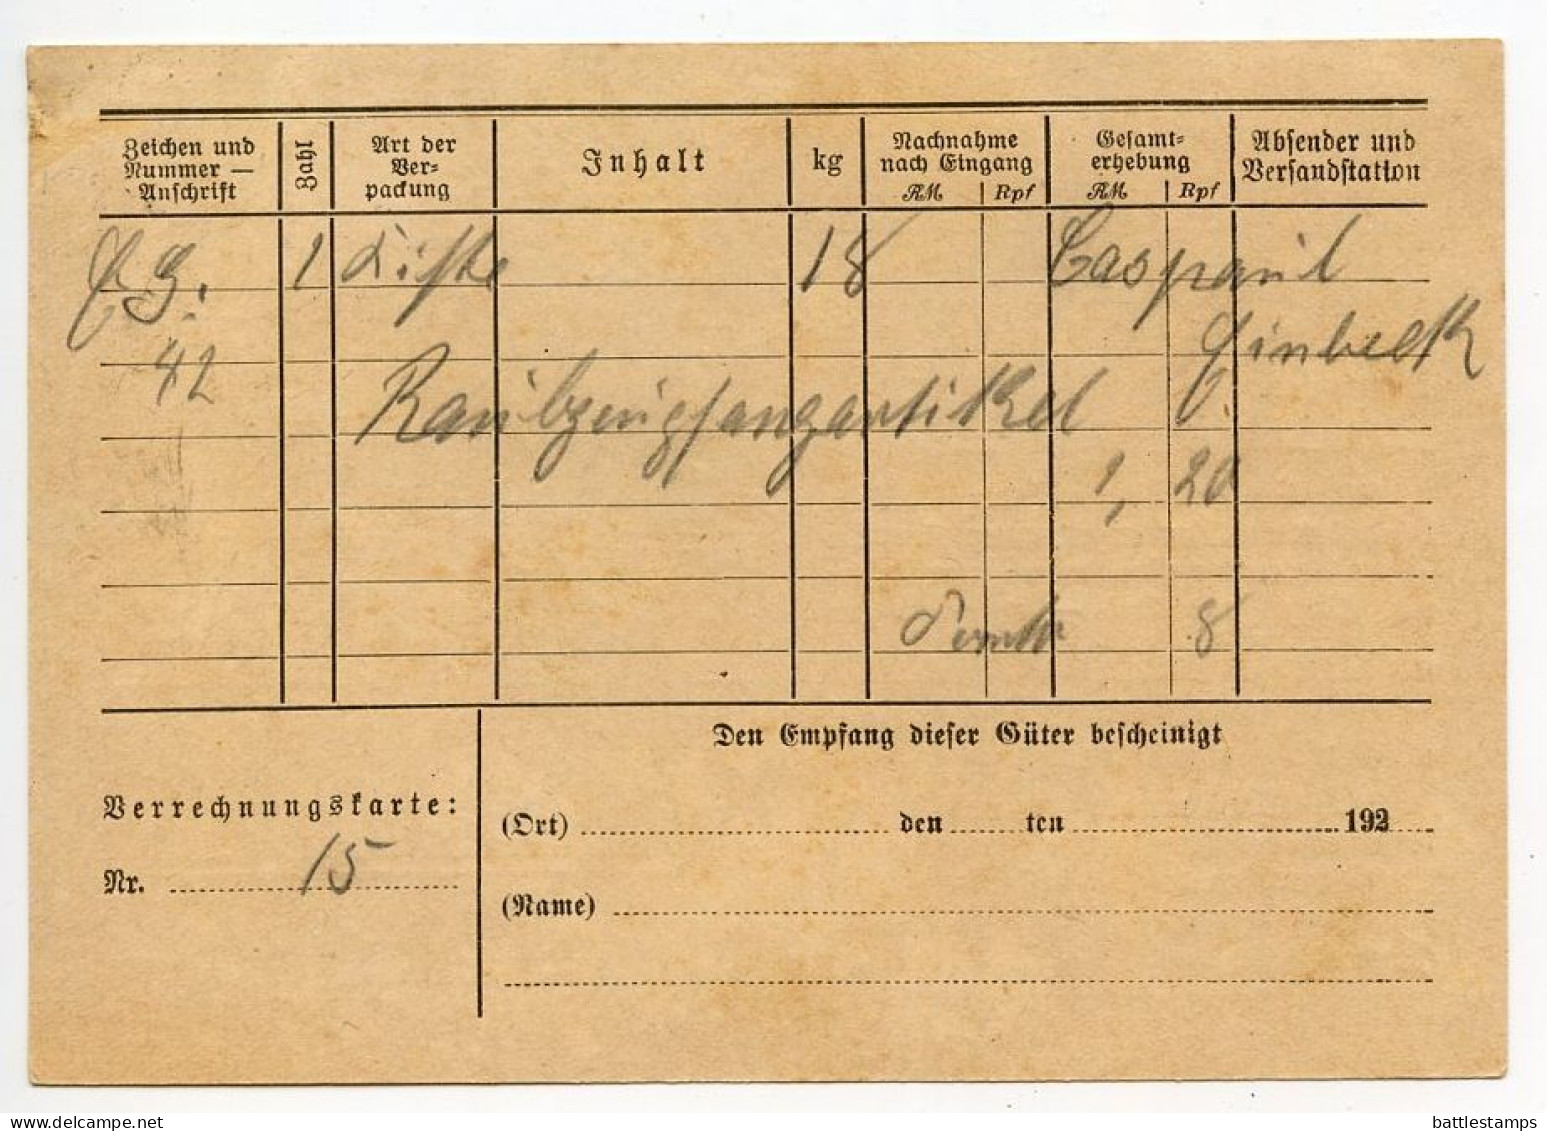 Zeichen und Nummer — Anschrift
Zahl
Art der Verpackung
Inhalt
kg
Nachnahme nach Eingang
RM Rpf
Gesamt-
erhebung
RM Rpf
Absender und
Versandstation
G. 1 Kiste 18
42
Einbeck
Raubzeugfangartikel
1, 20
Porto 8
Den Empfang dieser Güter bescheinigt
Verrechnungskarte:
(Ort) den ten 192
Nr. 15
(Name)
delcampe.net
battlestamps